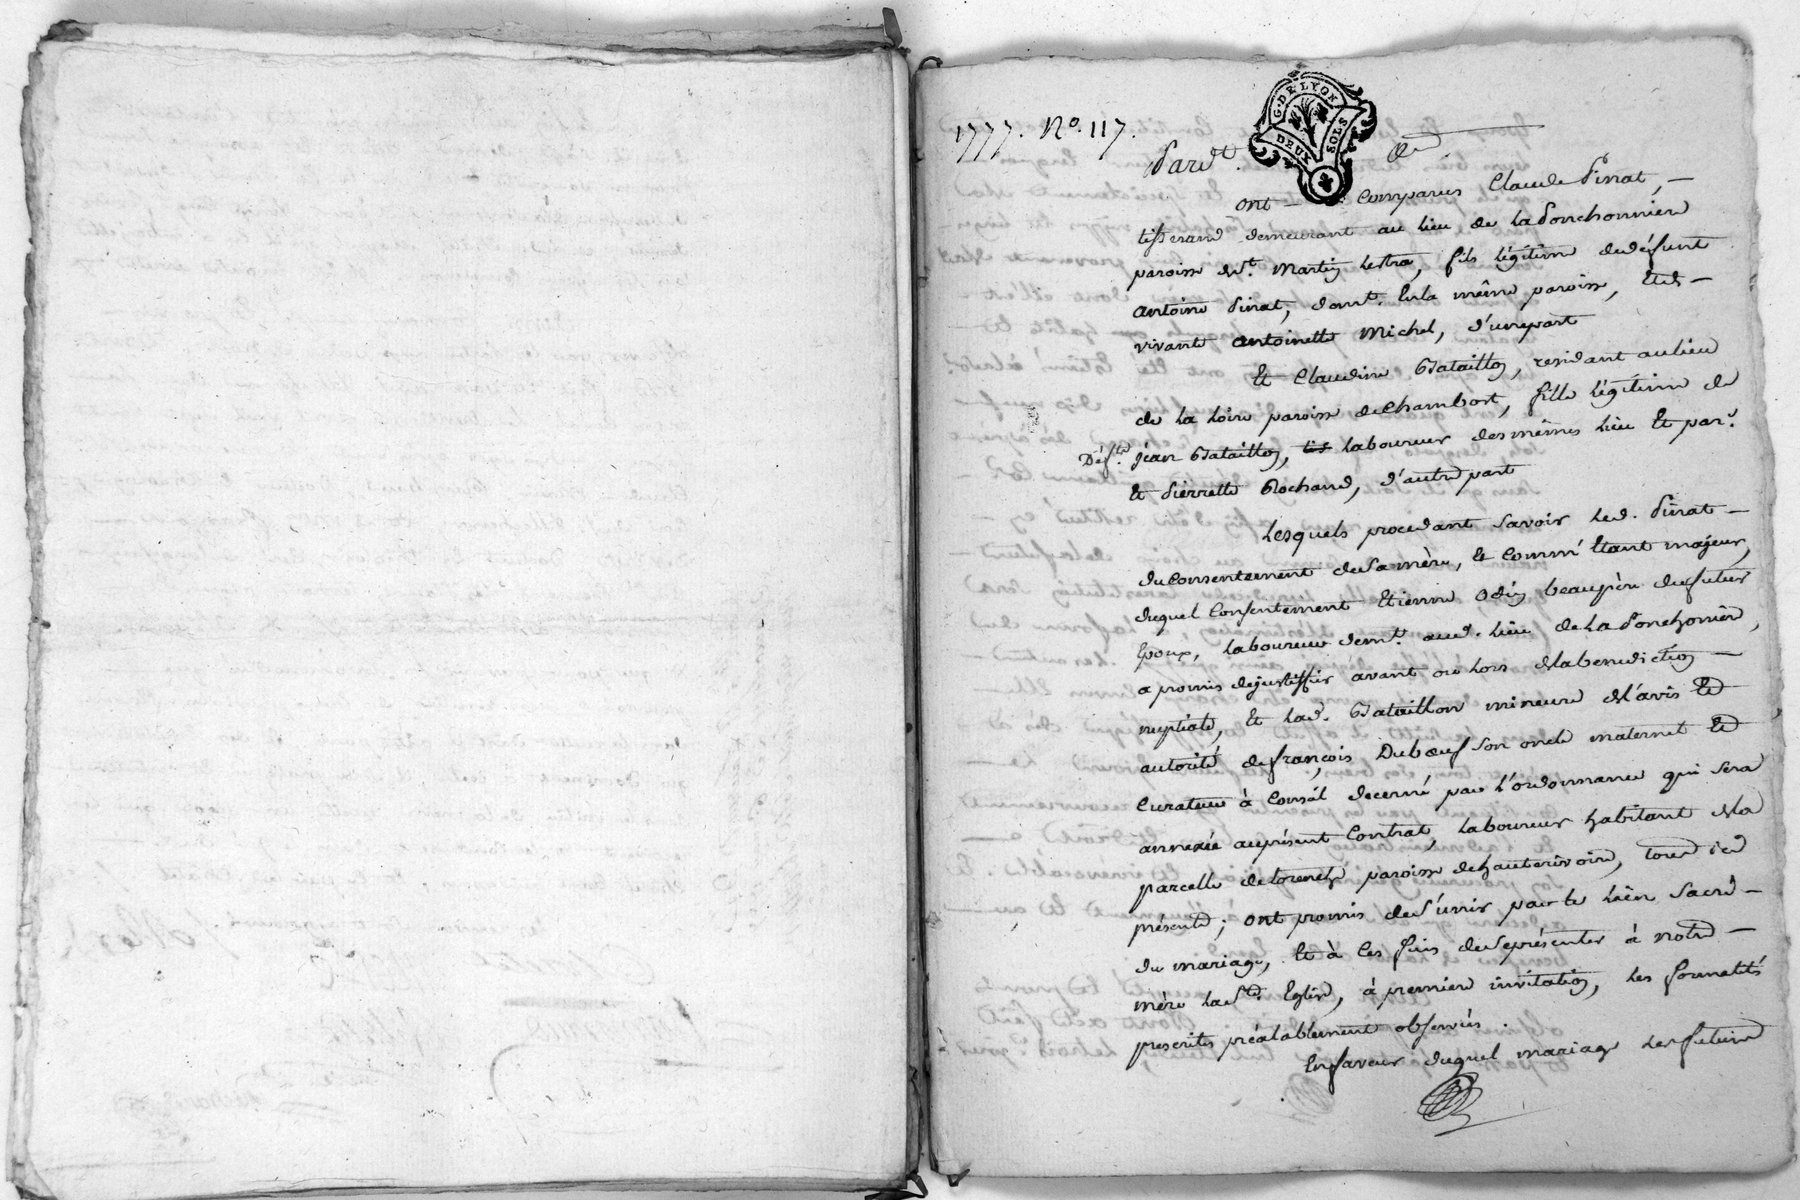 1777. No. 117.
G. DE LYON
DEUX SOLS
Pardt. &
ont comparus Claude Pinat, —
tisserand demeurant au lieu de la Ponchonniere
paroisse de St. Martin Lestra, fils légitime de défunt
antoine Pinat, de la même paroisse, et de —
vivante antoinette Michel, d'une part
Et Claudine Bataillon, residant au lieu
de la Loire paroisse de Chambost, fille légitime de
Déft. jéan Bataillon, laboureur des mêmes lieu et par.
et Pierrette Rochand, d'autre part
Lesquels procedant savoir led. Pinat —
du consentement de sa mère, et comm' étant majeur,
duquel consentement Etienne Odin beaupère du futur
Epoux, laboureur demt. aud. lieu de la Ponchonniere,
a promis de justiffier avant ou lors de la benediction —
nuptiale, et lad. Bataillon mineure de l'avis et
autorité de françois Duboeuf son oncle maternel et
curateur à conseil decerné par l'ordonnance qui sera
annexée au présent contrat, laboureur habitant de la
parcelle de paroisse de hauterivoire,
présente; ont promis de s'unir par le lien sacré —
du mariage, et à ces fins de se présenter à notre —
mère la Ste. Eglise, à premiere invitation, les formalités
prescrites préalablement observées.
En faveur duquel mariage les futurs